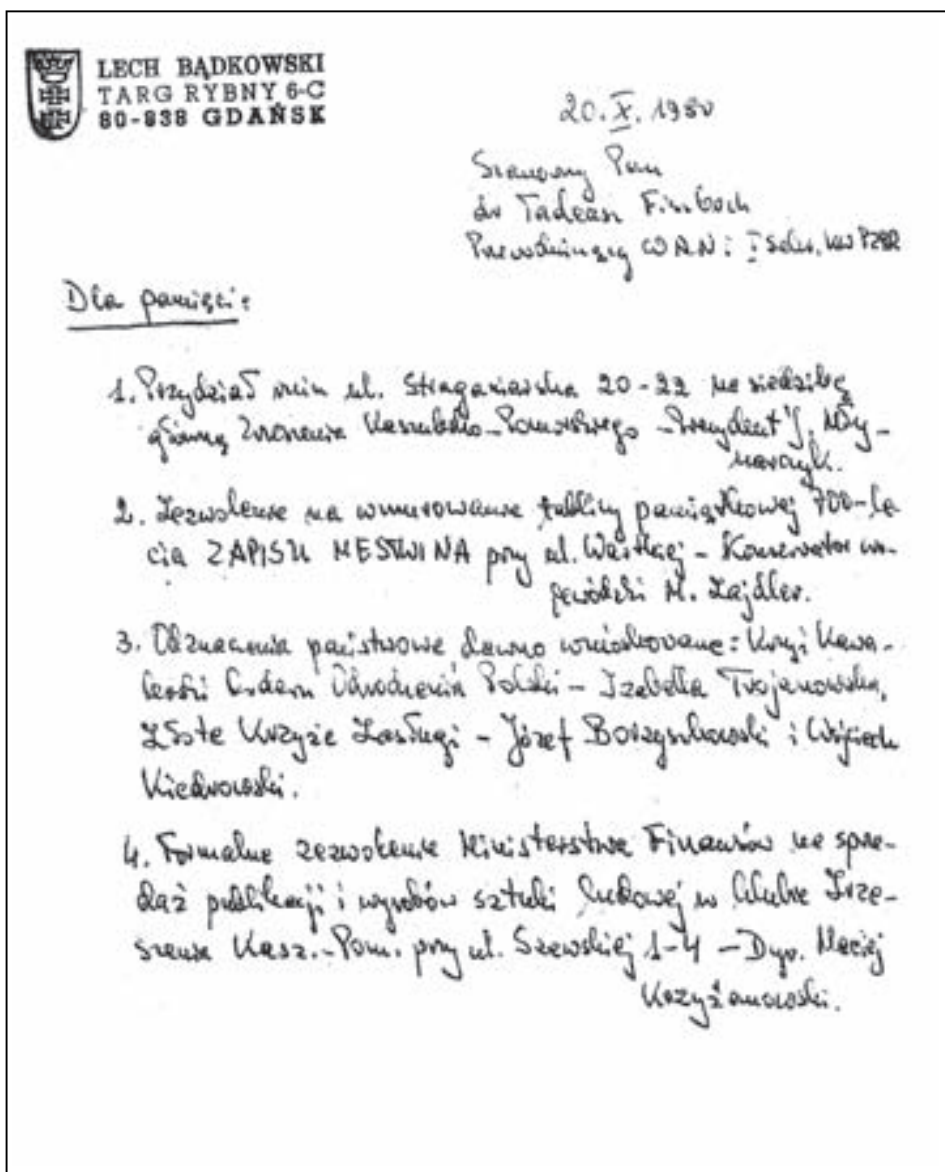 LECH BĄDKOWSKI
TARG RYBNY 6-C
80-838 GDAŃSK
20.X.1980
Szanowny Pan
dr Tadeusz Fiszbach
Przewodniczący WRN i I Sekr. KW PZPR
Dla pamięci:
1. Przydział ruin ul. Straganiarska 20-22 na siedzibę
główną Zrzeszenia Kaszubsko-Pomorskiego - Prezydent J. Mły-
narczyk.
2. Zezwolenie na wmurowanie tablicy pamiątkowej 700-le
cia ZAPISU MESTWINA przy ul. Wartkiej - Konserwator wo-
jewódzki M. Zajdler.
3. Odznaczenia państwowe dawno wnioskowane: Krzyż Kawa-
lerski Orderu Odrodzenia Polski - Izabella Trojanowska,
Złote Krzyże Zasługi - Józef Borzyszkowski i Wojciech
Kiedrowski.
4. Formalne zezwolenie Ministerstwa Finansów na sprze-
daż publikacji i wyrobów sztuki ludowej w Klubie Zrze-
szenia Kasz.-Pom. przy ul. Szewskiej 1-4 - Dyr. Maciej
Krzyżanowski.